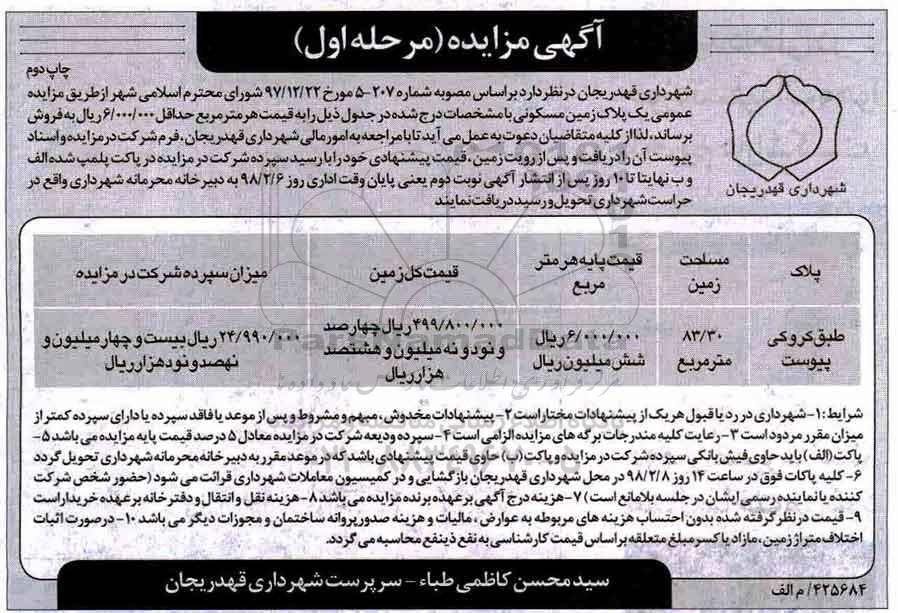 آگهی مزایده (مرحله اول)
چاپ دوم
شهرداری قهدریجان
شهرداری قهدریجان در نظر دارد بر اساس مصوبه شماره ۲۰۷-۵ مورخ ۹۷/۱۲/۲۲ شورای محترم اسلامی شهر از طریق مزایده
عمومی یک پلاک زمین مسکونی با مشخصات درج شده در جدول ذیل را به قیمت هر متر مربع حداقل ۶/۰۰۰/۰۰۰ ریال به فروش
برساند، لذا از کلیه متقاضیان دعوت به عمل می آید تا با مراجعه به امور مالی شهرداری قهدریجان، فرم شرکت در مزایده و اسناد
پیوست آن را دریافت و پس از رویت زمین، قیمت پیشنهادی خود را با رسید سپرده شرکت در مزایده در پاکت پلمپ شده الف
و ب نهایتا تا ۱۰ روز پس از انتشار آگهی نوبت دوم یعنی پایان وقت اداری روز ۹۸/۲/۶ به دبیرخانه محرمانه شهرداری واقع در
حراست شهرداری تحویل و رسید دریافت نمایند
پلاک | مساحت زمین | قیمت پایه هر متر مربع | قیمت کل زمین | میزان سپرده شرکت در مزایده
طبق کروکی پیوست | ۸۳/۳۰ مترمربع | ۶/۰۰۰/۰۰۰ ریال شش میلیون ریال | ۴۹۹/۸۰۰/۰۰۰ ریال چهارصد و نود و نه میلیون و هشتصد هزار ریال | ۲۴/۹۹۰/۰۰۰ ریال بیست و چهار میلیون و نهصد و نود هزار ریال
شرایط: ۱- شهرداری در رد یا قبول هر یک از پیشنهادات مختار است ۲- پیشنهادات مخدوش، مبهم و مشروط و پس از موعد یا فاقد سپرده یا دارای سپرده کمتر از
میزان مقرر مردود است ۳- رعایت کلیه مندرجات برگه های مزایده الزامی است ۴- سپرده ودیعه شرکت در مزایده معادل ۵ درصد قیمت پایه مزایده می باشد ۵-
پاکت (الف) باید حاوی فیش بانکی سپرده شرکت در مزایده و پاکت (ب) حاوی قیمت پیشنهادی باشد که در موعد مقرر به دبیرخانه محرمانه شهرداری تحویل گردد
۶- کلیه پاکات فوق در ساعت ۱۴ روز ۹۸/۲/۸ در محل شهرداری قهدریجان بازگشایی و در کمیسیون معاملات شهرداری قرائت می شود (حضور شخص شرکت
کننده یا نماینده رسمی ایشان در جلسه بلامانع است) ۷- هزینه درج آگهی بر عهده برنده مزایده می باشد ۸- هزینه نقل و انتقال و دفترخانه بر عهده خریدار است
۹- قیمت در نظر گرفته شده بدون احتساب هزینه های مربوطه به عوارض، مالیات و هزینه صدور پروانه ساختمان و مجوزات دیگر می باشد ۱۰- در صورت اثبات
اختلاف متراژ زمین، مازاد یا کسر مبلغ متعلقه بر اساس قیمت کارشناسی به نفع ذینفع محاسبه می گردد.
سید محسن کاظمی طباء - سرپرست شهرداری قهدریجان
۴۲۵۶۸۴/ م الف